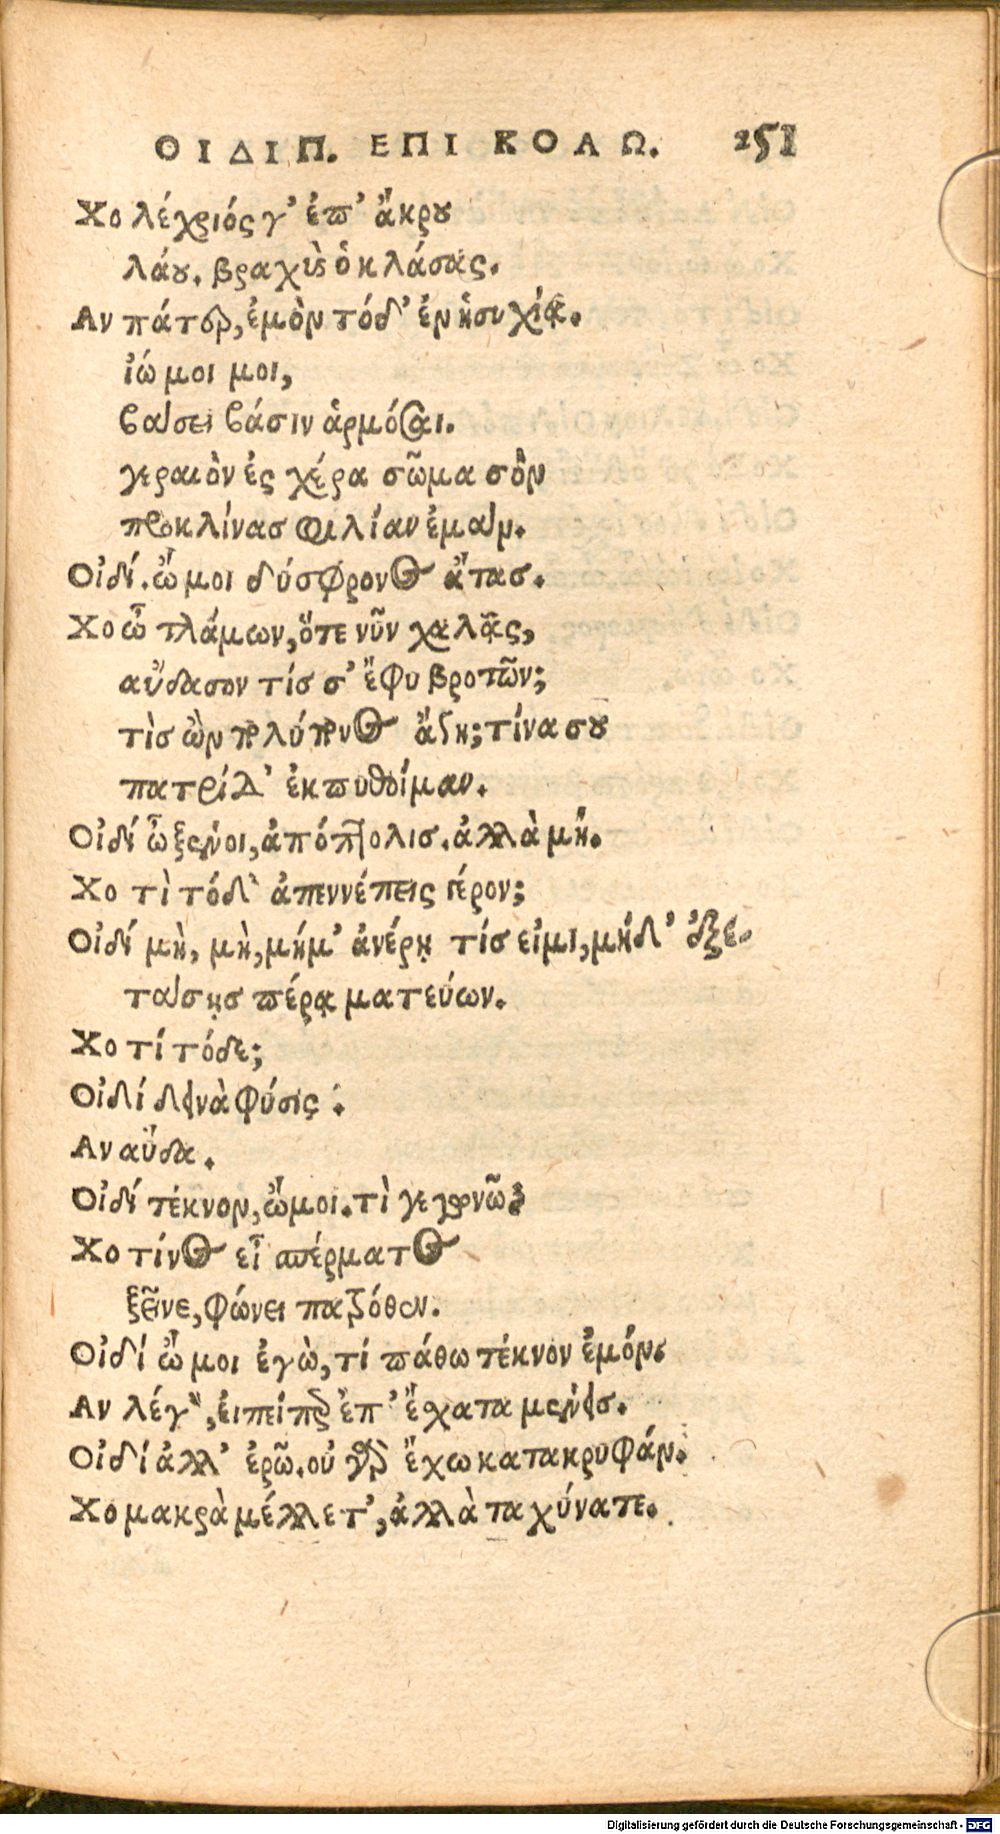 ΟΙΔΙΠ. ΕΠΙ ΚΟΛΩ. 251
Χο λέχριός γ' ἐπ' ἄκρου
λάου. βραχὺς ὀκλάσας.
Αν πάτερ, ἐμὸν τόδ' ἐν ἡσυχίᾳ.
ἰώ μοι μοι,
βάσει βάσιν ἁρμόσαι.
γεραιὸν ἐς χέρα σῶμα σὸν
προκλίνασ φιλίαν ἐμάν.
Οἰδί. ὤ μοι δύσφρονος ἄτασ.
Χο ὦ τλάμων, ὅτε νῦν χαλᾷς,
αὔδασον τίσ σ' ἔφυ βροτῶν;
τὶσ ὢν πολύπονος ἄγη; τίνα σου
πατρίδ' ἐκπυθοίμαν.
Οἰδί ὦ ξένοι, ἀπόπτολισ. ἀλλὰ μή.
Χο τὶ τόδ' ἀπεννέπεις γέρον;
Οἰδί μὴ, μὴ, μήμ' ἀνέρῃ τίσ εἰμι, μήδ' ἐξε-
τάσῃσ πέρα ματεύων.
Χο τί τόδε;
Οἰδί δεινὰ φύσις :
Αν αὔδα.
Οἰδί τέκνον, ὤμοι. τὶ γεγωνῶ;
Χο τίνος εἶ σπέρματος
ξεῖνε, φώνει πατρόθεν.
Οἰδί ὤ μοι ἐγὼ, τί πάθω τέκνον ἐμόν;
Αν λέγ', ἐιπείπερ ἐπ' ἔσχατα μένεισ.
Οἰδί ἀλλ' ἐρῶ. οὐ γὰρ ἔχω κατακρυφάν.
Χο μακρὰ μέλλετ', ἀλλὰ ταχύνατε.
Digitalisierung gefördert durch die Deutsche Forschungsgemeinschaft - DFG